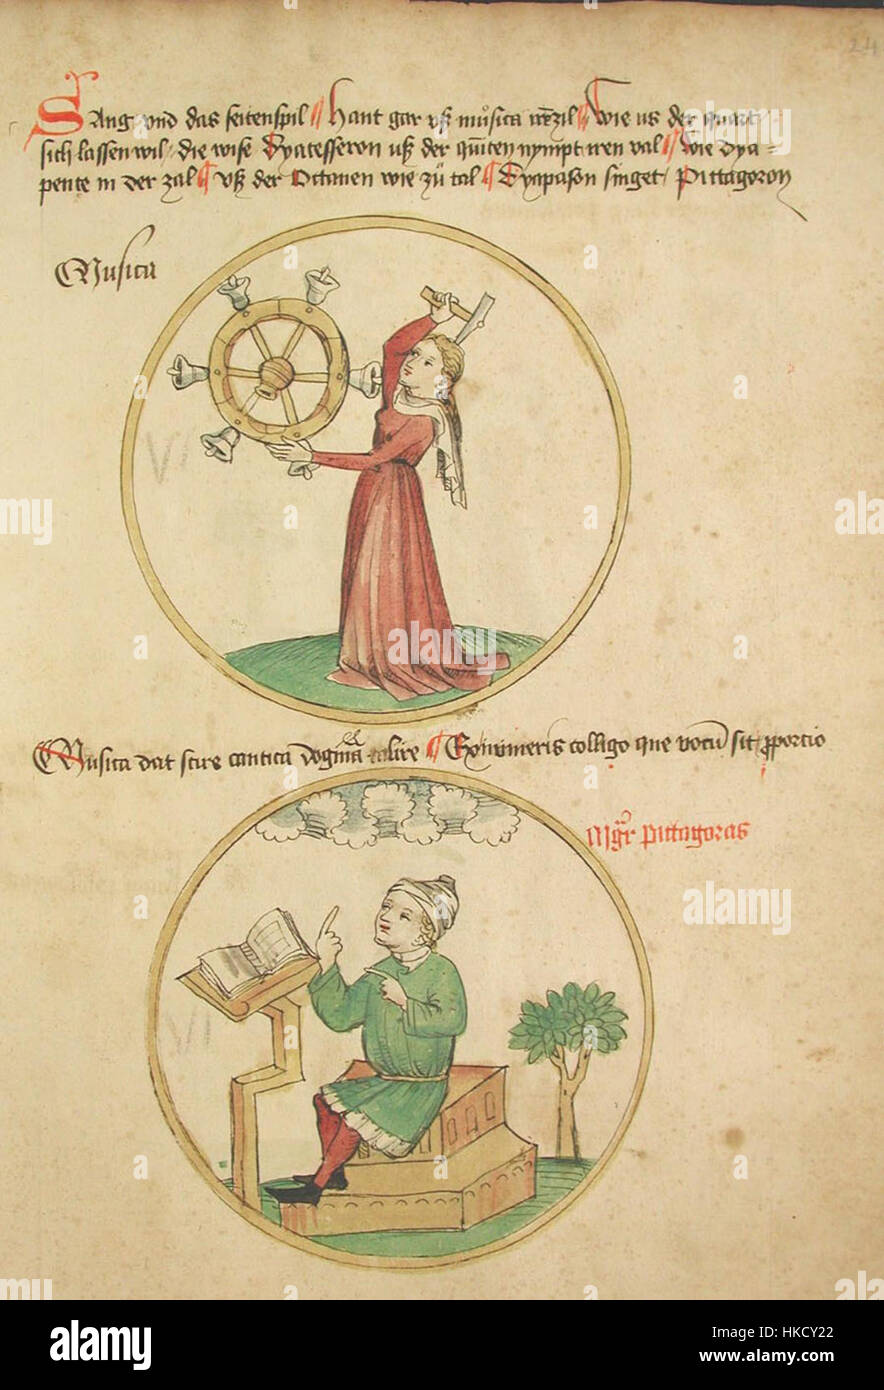 24
Sang vnd das seitenspil ¶ Hant gar vß musica zil ¶ Wie us der quart
sich lassen wil / die wise Dyatesseron uß der quinten nympt iren val ¶ wie dya=
pente in der zal ¶ vß der Octauen wie zu tal ¶ Dyapason singet / Pittagoron
Musica
VI
Musica dat scire cantica dogma ¶ Ex numeris colligo que vocum sit proporcio
Mgr pittagoras
VI
alamy
Image ID: HKCY22
www.alamy.com